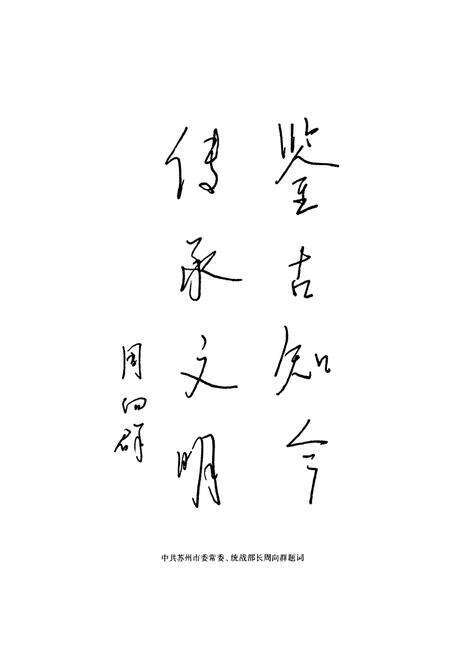 鉴古知今
传承文明
周向群
中共苏州市委常委、统战部长周向群题词